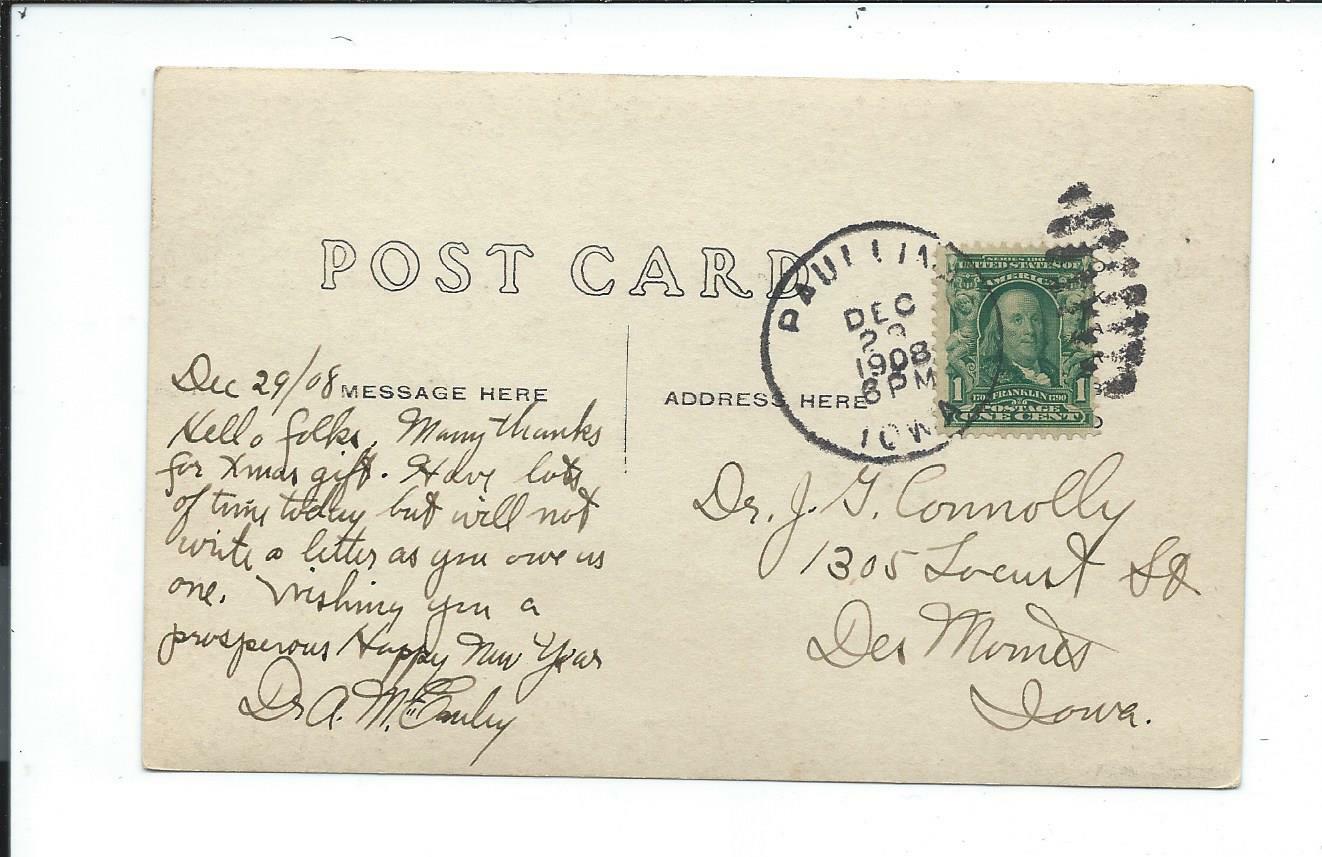 POST CARD
PAULLINA
DEC
29
1908
6 PM
IOWA
SERIES 1902
UNITED STATES OF
AMERICA
1 1706 FRANKLIN 1790 1
POSTAGE
ONE CENT
MESSAGE HERE
ADDRESS HERE
Dec 29/08
Hello folks, Many thanks
for Xmas gift. Have lots
of time today but will not
write a letter as you owe us
one. Wishing you a
prosperous Happy New Year
Dr A.
Dr. J. G. Connolly
1305 Locust St
Des Moines
Iowa.